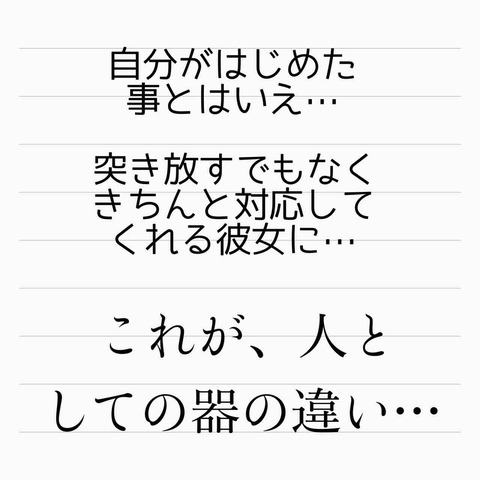 自分がはじめた
事とはいえ…
突き放すでもなく
きちんと対応して
くれる彼女に…
これが、人と
しての器の違い…